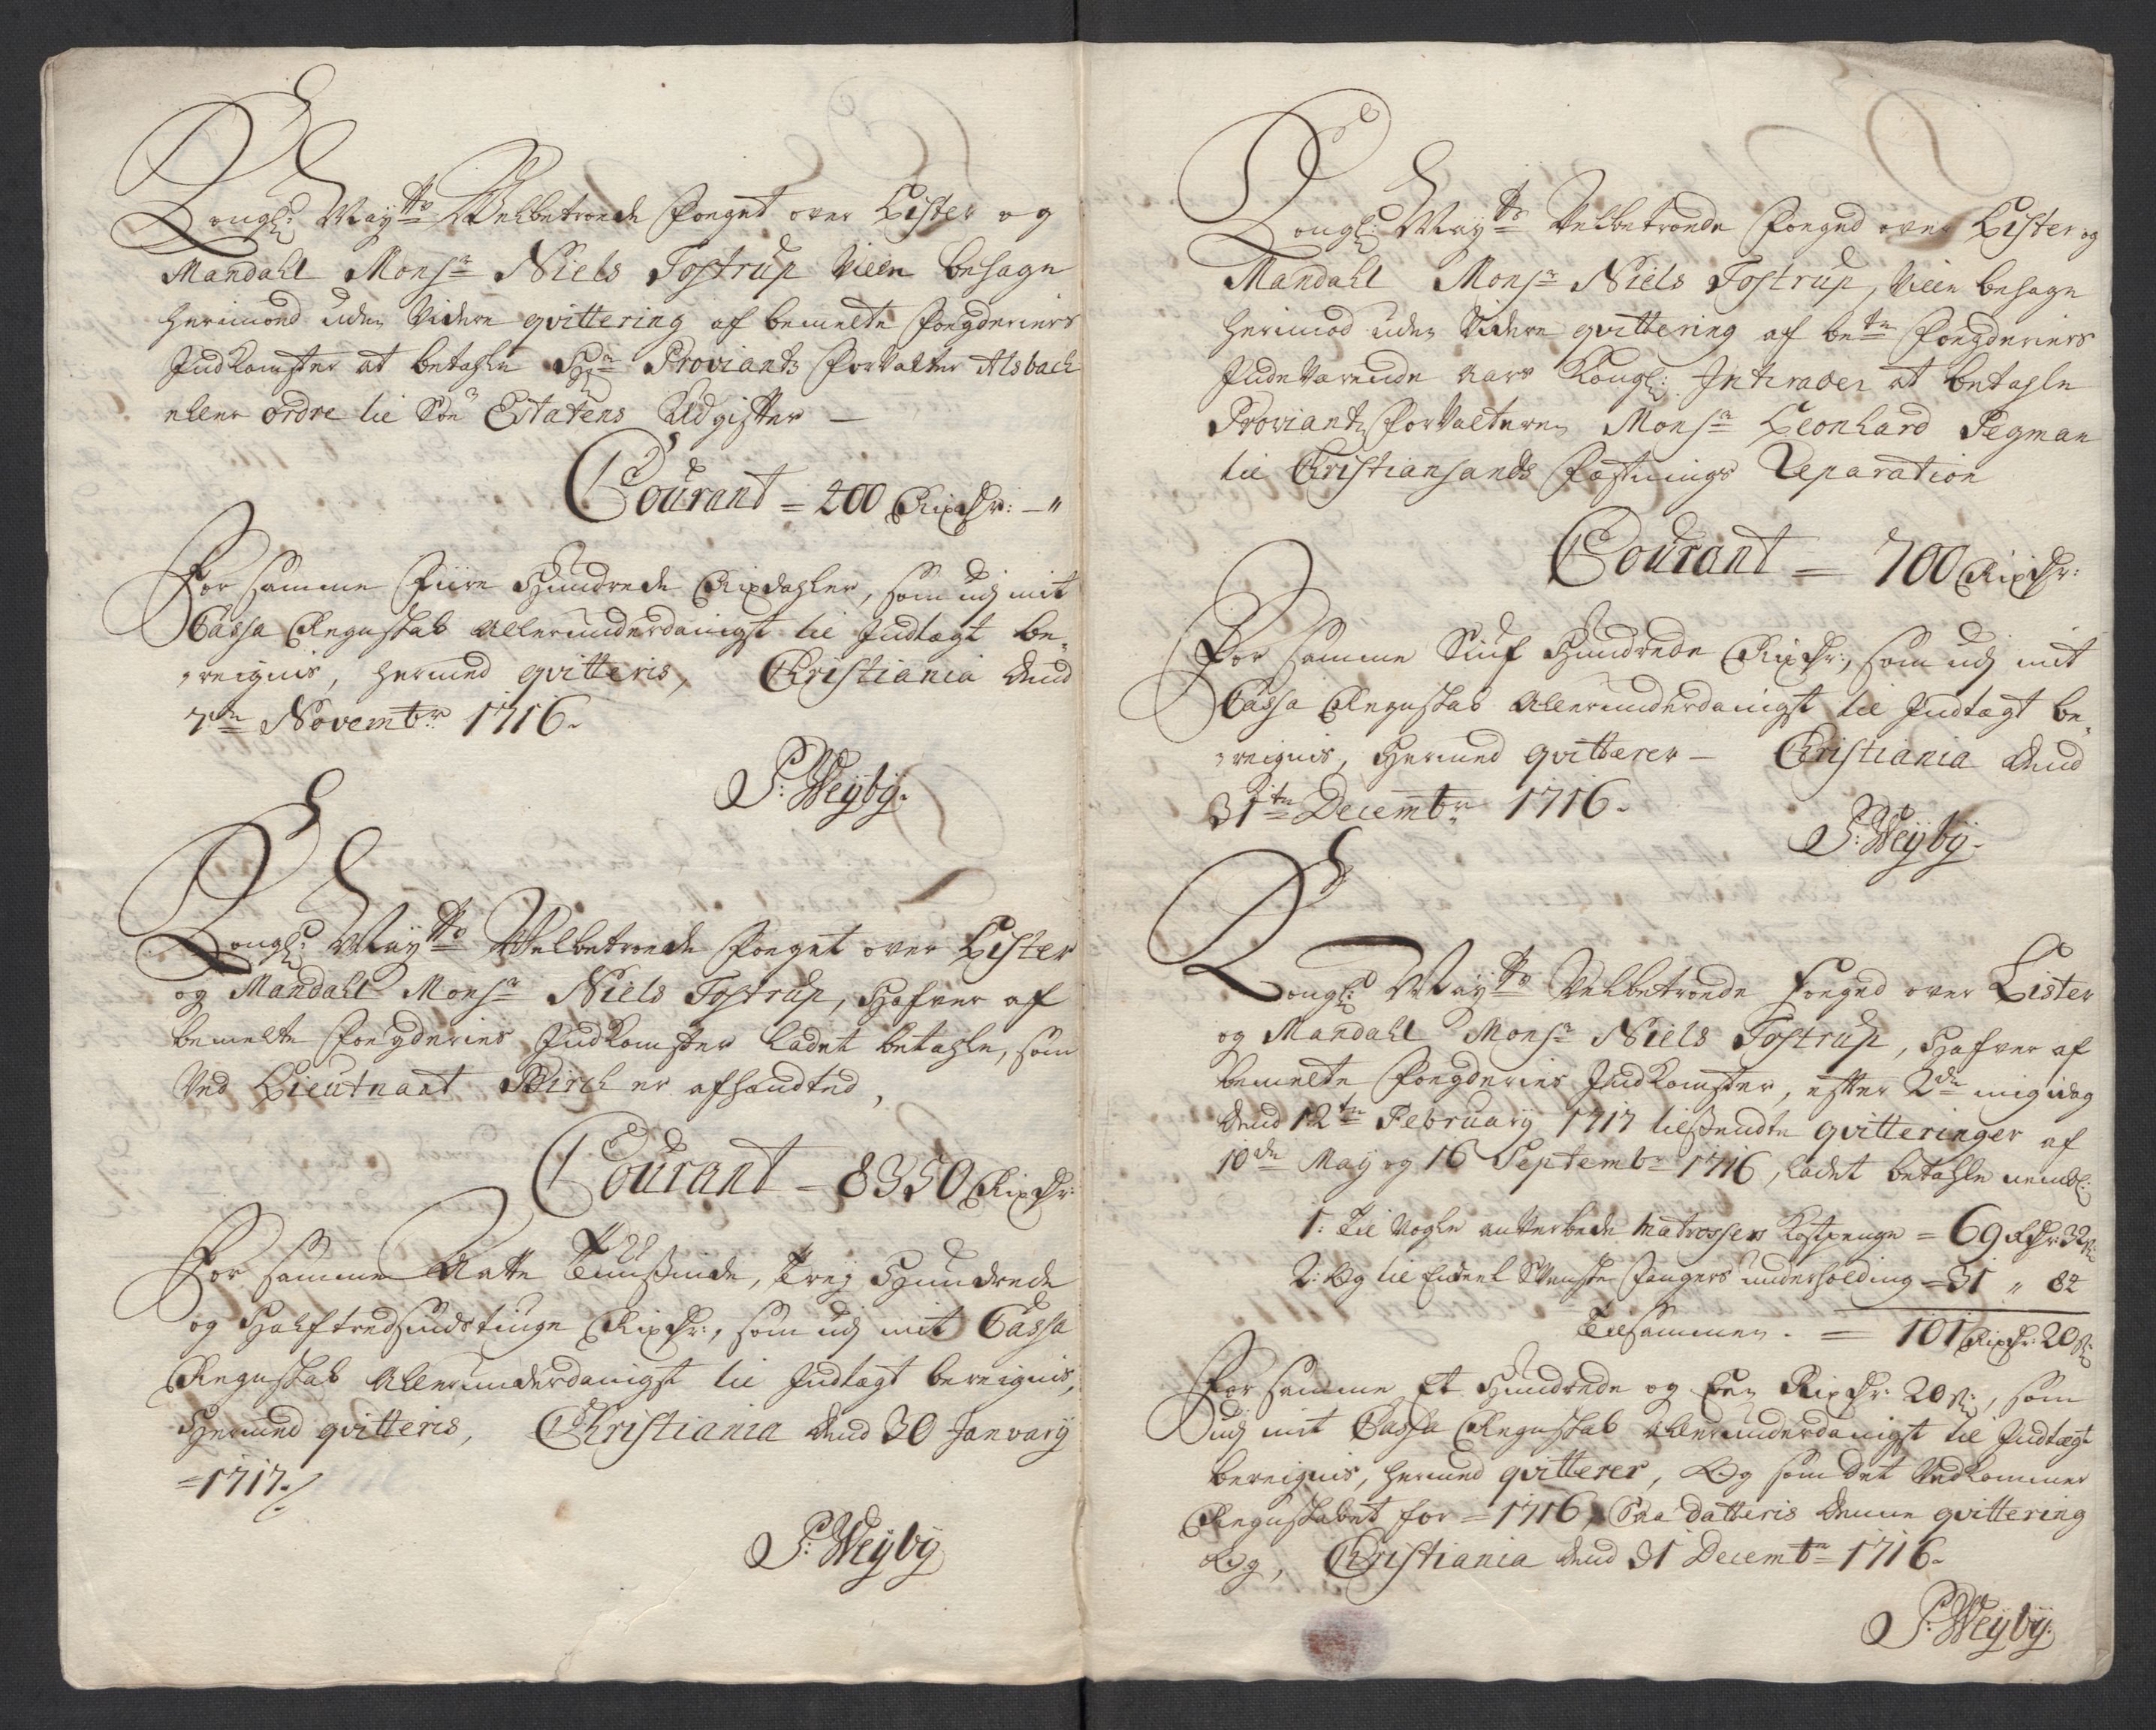 Kongl: Maÿts Velbetroede Foeget over Lister og
Mandahl Monsr Niels Tostrup Ville behage
herimod uden Videre qvittering af bemelte Foegderiers
Indkomster at betahle Hr Proviant Forvalter Alsbach
eller ordre til Søe Etatens Udgifter —
Courant = 400 Rixdr: — "
For samme Fiire Hundrede Rixdahler, som udj mit
Cassa Regnskab Allerunderdanigst til Indtægt be,
,reignis, hermed qvitteris, Christiania dend
7de Novembr 1716.
S: Weÿbÿ.
Kongl: Maÿts Velbetroede Foeget over Lister
og Mandahl Monsr Niels Tostrup, Hafver af
bemelte Foegderies Indkomster ladet betahle, som
Ved Lieutnant Birch er afsendted,
Courant = 8350 Rixdr:
For samme Aatte Tuusinde, Trej Hundrede
og Halftredsindstiuge Rixdr:, som udj mit Cassa
Regnskab Allerunderdanigst til Indtægt bereignis,
Hermed qvitteris, Christiania dend 30 Januarÿ
=1717./
S: Weÿbÿ
Kongl: Maÿts Velbetroede Foeged over Lister og
Mandahl Monsr Niels Tostrup, Ville behage
herimod uden Videre qvittering af bete Foegderiers
Indeværende Aars Kongl: Intrader at betahle
Proviant Forvalteren Monsr Leonhard Pegman
til Christiansands Fæstnings Reparation
Courant = 700 Rixdr:
For samme Siuf Hundrede Rixdr:, som udj mit
Cassa Regnskab Allerunderdanigst til Indtægt be,
,reignis, Hermed qvitterer — Christiania dend
31te Decembr 1716.
S: Weÿbÿ.
Kongl: Maÿts Velbetroede Foeged over Lister
og Mandahl Monsr Niels Tostrup, Hafver af
bemelte Foegderies Indkomster, efter 2de mig idag
dend 12te Februarÿ 1717 tilsendte qvitteringer af
10de Maÿ og 16 Septembr 1716, ladet betahle nemb:
1: Til Nogle anverbede Matrossers Kostpenge = 69 Rdr: 32s:
2: Og til Endeel Svenske Fangers underholding = 31 " 84
Tilsammen. = 101 Rixdr: 20s:
For samme Et Hundrede og Een Rixdr: 20s:, som
udj mit Cassa Regnskab Allerunderdanigst til Indtægt
bereignis, hermed qvitterer, Og som det Vedkommer
Regnskabet for =1716, Saa datteris denne qvittering
Og, Christiania dend 31 Decembr 1716.
S: Weÿbÿ.